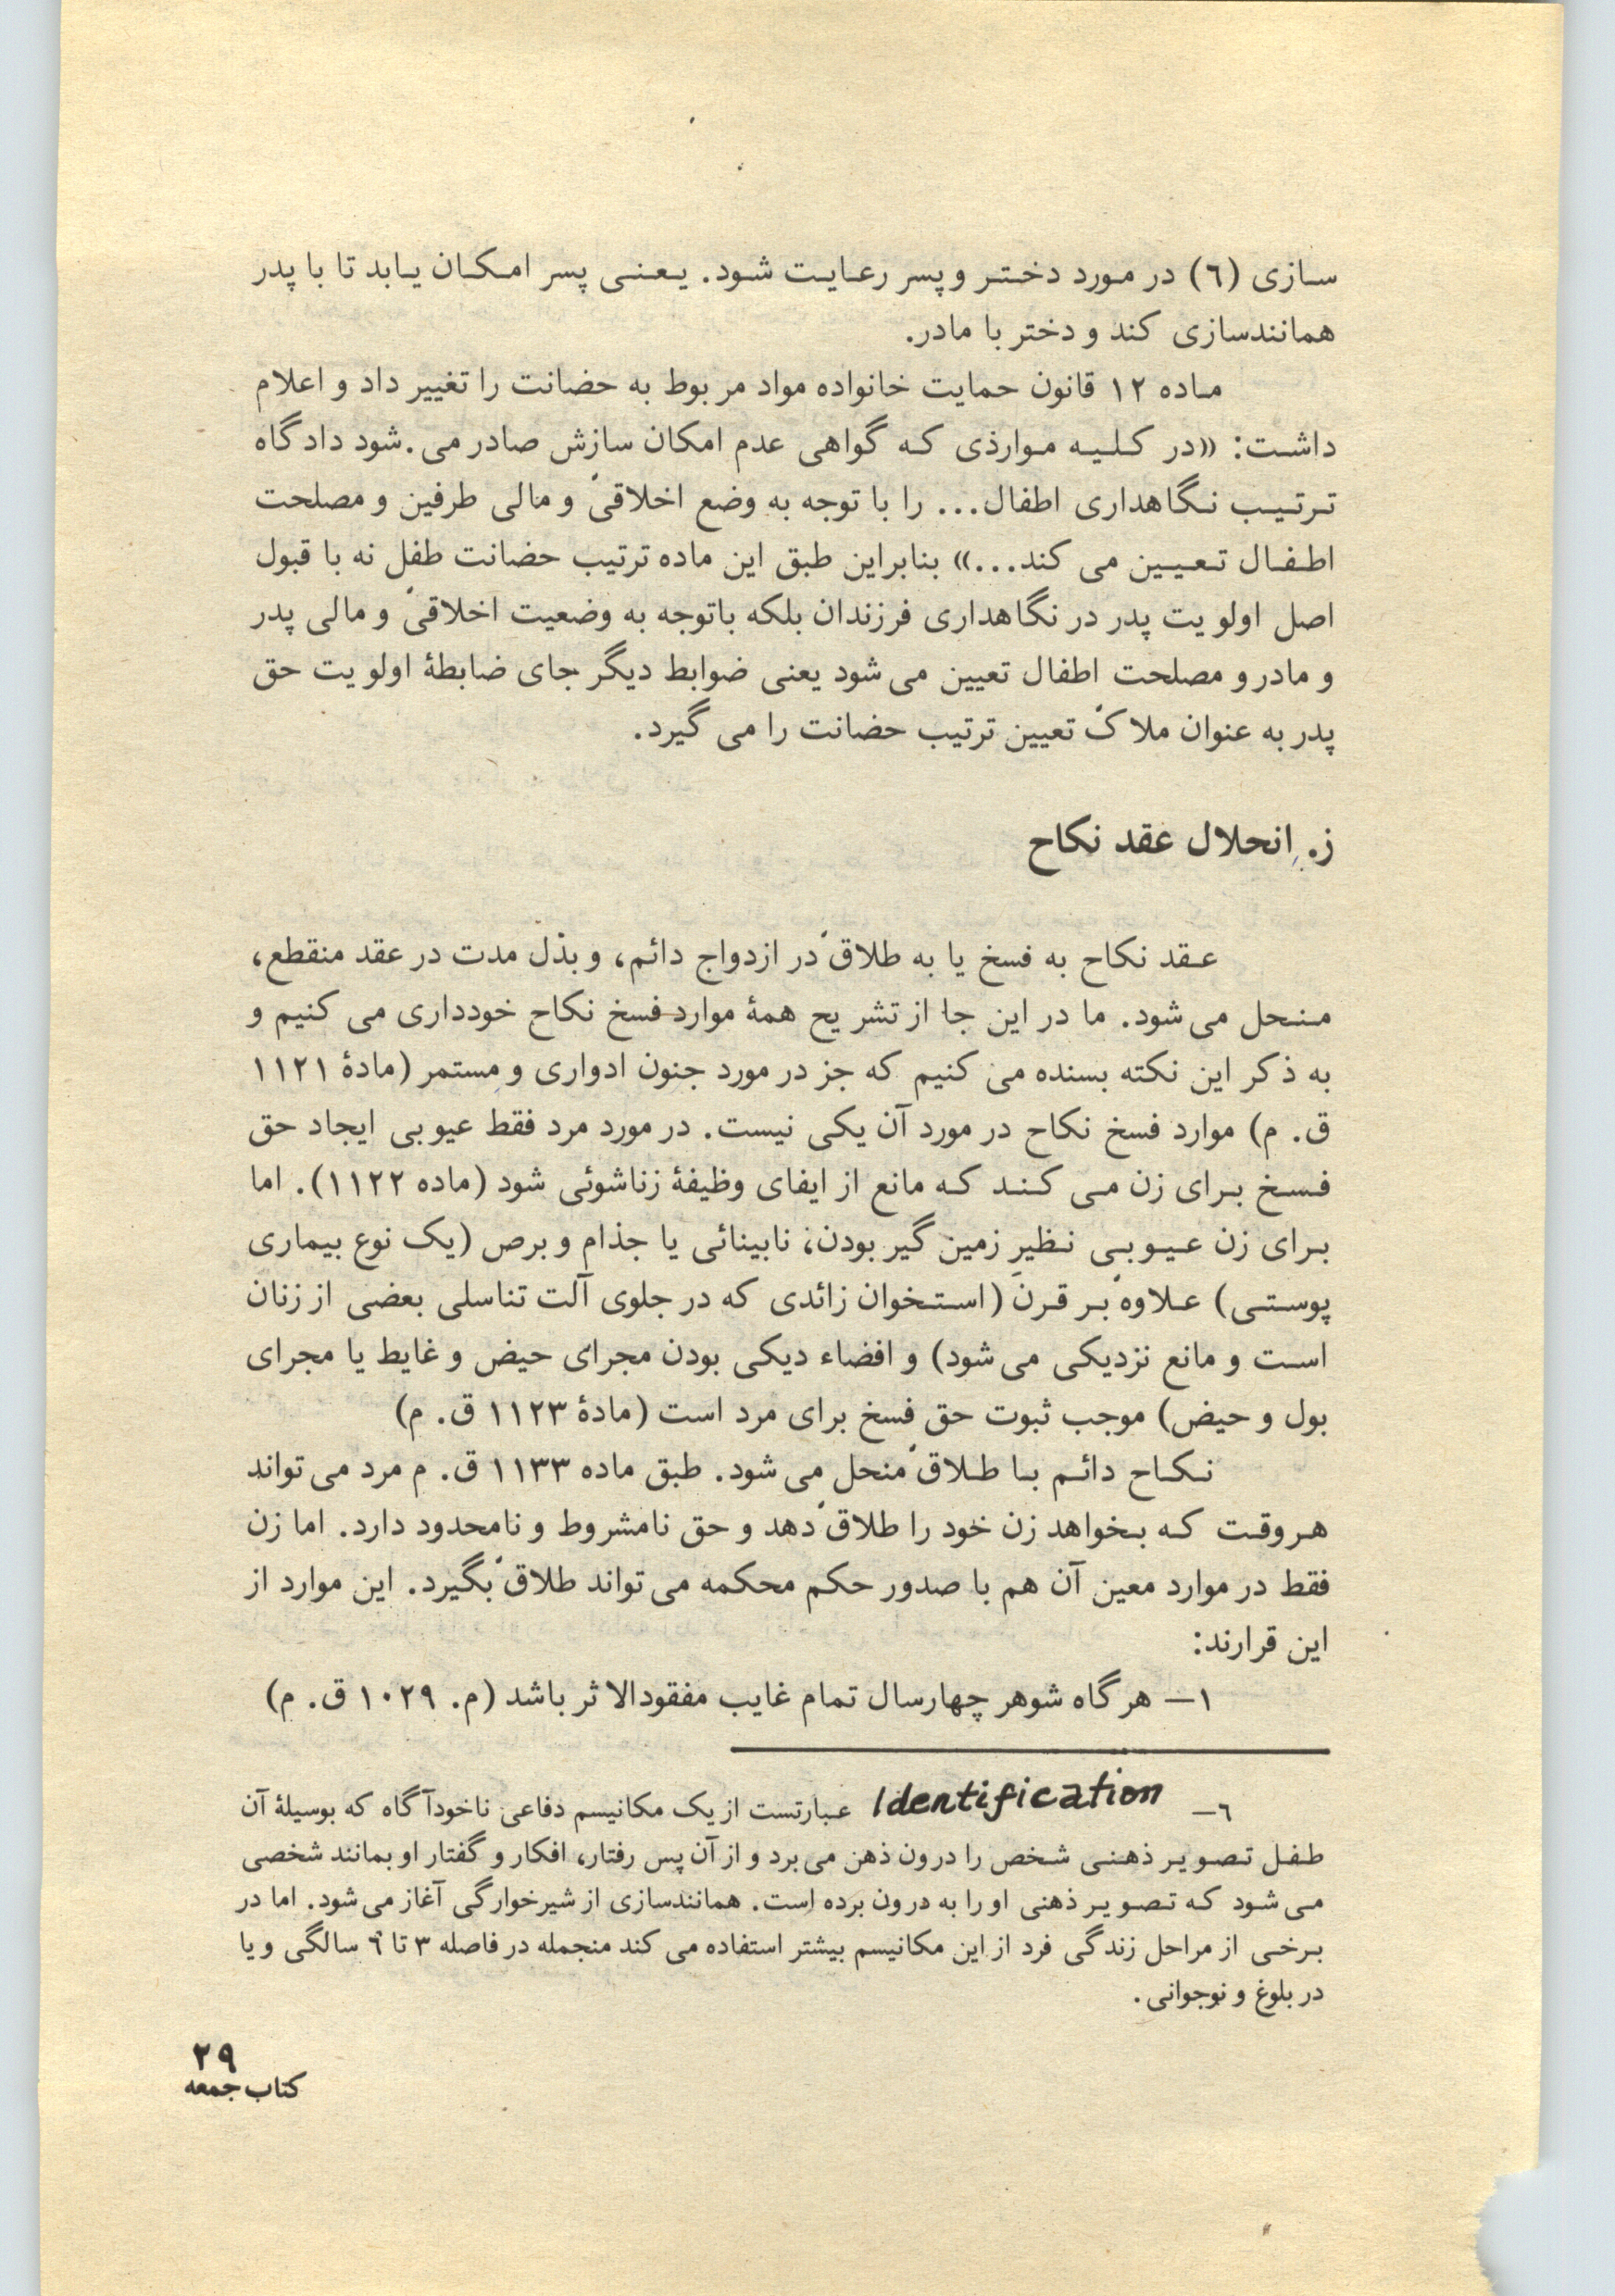 سازی (٦) در مورد دختر و پسر رعایت شود. یعنی پسر امکان یابد تا با پدر
همانندسازی کند و دختر با مادر.
ماده ۱۲ قانون حمایت خانواده مواد مربوط به حضانت را تغییر داد و اعلام
داشت: «در کلیه مواردی که گواهی عدم امکان سازش صادر می.شود دادگاه
ترتیب نگاهداری اطفال... را با توجه به وضع اخلاقی و مالی طرفین و مصلحت
اطفال تعیین می کند...» بنابراین طبق این ماده ترتیب حضانت طفل نه با قبول
اصل اولویت پدر در نگاهداری فرزندان بلکه باتوجه به وضعیت اخلاقی و مالی پدر
و مادر و مصلحت اطفال تعیین می شود یعنی ضوابط دیگر جای ضابطۀ اولویت حق
پدر به عنوان ملاک تعیین ترتیب حضانت را می گیرد.
ز. انحلال عقد نکاح
عقد نکاح به فسخ یا به طلاق در ازدواج دائم، و بذل مدت در عقد منقطع،
منحل می شود. ما در این جا از تشریح همۀ موارد فسخ نکاح خودداری می کنیم و
به ذکر این نکته بسنده می کنیم که جز در مورد جنون ادواری و مستمر (مادۀ ۱۱۲۱
ق. م) موارد فسخ نکاح در مورد آن یکی نیست. در مورد مرد فقط عیوبی ایجاد حق
فسخ برای زن می کند که مانع از ایفای وظیفۀ زناشوئی شود (ماده ۱۱۲۲). اما
برای زن عیوبی نظیر زمین گیر بودن، نابینائی یا جذام و برص (یک نوع بیماری
پوستی) علاوه بر قرن (استخوان زائدی که در جلوی آلت تناسلی بعضی از زنان
است و مانع نزدیکی می شود) و افضاء دیکی بودن مجرای حیض و غایط یا مجرای
بول و حیض) موجب ثبوت حق فسخ برای مرد است (مادۀ ۱۱۲۳ ق. م)
نکاح دائم با طلاق منحل می شود. طبق ماده ۱۱۳۳ ق. م مرد می تواند
هروقت که بخواهد زن خود را طلاق دهد و حق نامشروط و نامحدود دارد. اما زن
فقط در موارد معین آن هم با صدور حکم محکمه می تواند طلاق بگیرد. این موارد از
این قرارند:
۱— هرگاه شوهر چهارسال تمام غایب مفقودالاثر باشد (م. ۱۰۲۹ ق. م)
٦— Identification عبارتست از یک مکانیسم دفاعی ناخودآگاه که بوسیلۀ آن
طفل تصویر ذهنی شخص را درون ذهن می برد و از آن پس رفتار، افکار و گفتار او بمانند شخصی
می شود که تصویر ذهنی او را به درون برده است. همانندسازی از شیرخوارگی آغاز می شود. اما در
برخی از مراحل زندگی فرد از این مکانیسم بیشتر استفاده می کند منجمله در فاصله ۳ تا ٦ سالگی و یا
در بلوغ و نوجوانی.
۲۹
کتاب جمعه